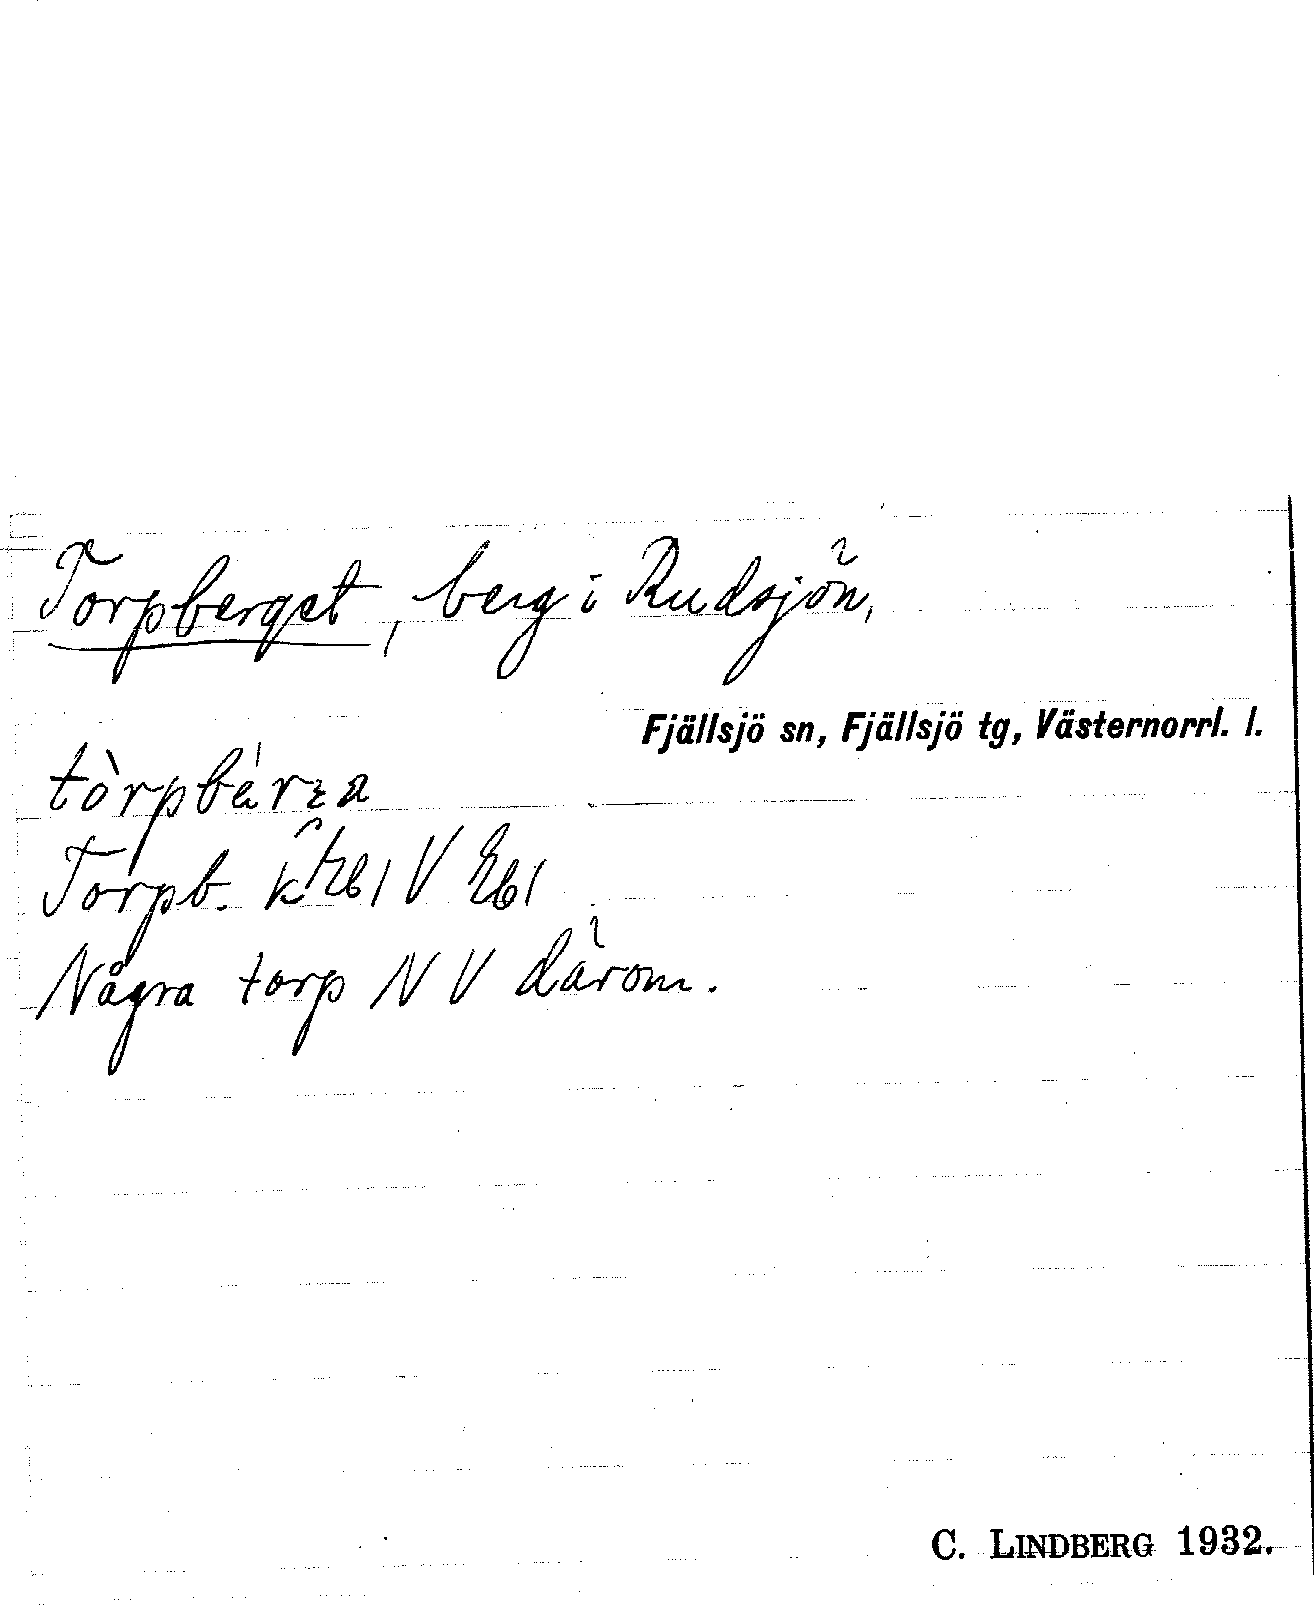 Torpberget, berg i Rudsjön,
Fjällsjö sn, Fjällsjö tg, Västernorrl. l.
Torpb.
Några torp NV därom.
C. LINDBERG 1932.